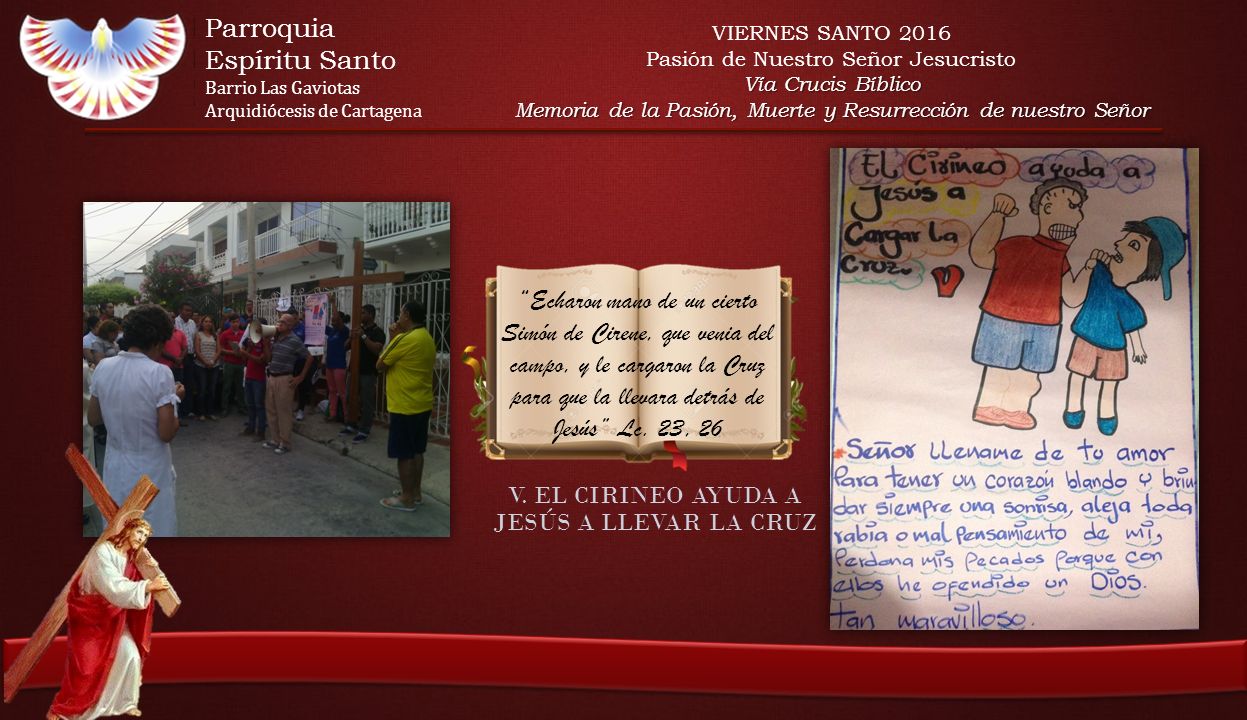 Parroquia
Espíritu Santo
Barrio Las Gaviotas
Arquidiócesis de Cartagena
VIERNES SANTO 2016
Pasión de Nuestro Señor Jesucristo
Vía Crucis Bíblico
Memoria de la Pasión, Muerte y Resurrección de nuestro Señor
“Echaron mano de un cierto
Simón de Cirene, que venia del
campo, y le cargaron la Cruz
para que la llevara detrás de
Jesús” Lc. 23, 26
V. EL CIRINEO AYUDA A
JESÚS A LLEVAR LA CRUZ
El Cirineo ayuda a
Jesús a
Cargar la
Cruz.
Señor LLename de tu amor
Para tener un corazón blando y brin-
dar siempre una sonrisa, aleja toda
rabia o mal pensamiento de mi,
Perdona mis pecados porque con
ellos he ofendido un Dios.
tan maravilloso.